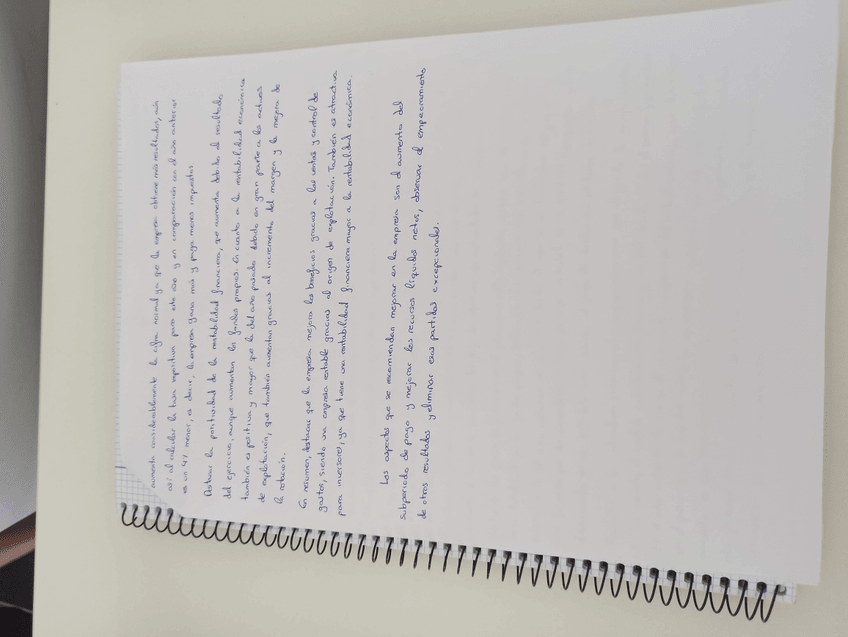 aumenta considerablemente la cifra normal ya que la empresa obtiene más resultados, aún
así al calcular la tasa impositiva para este año y en comparación con el año anterior
es un 4% menor, es decir, la empresa gana más y paga menos impuestos.
Destacar la positividad de la rentabilidad financiera, que aumenta debido al resultado
del ejercicio, aunque aumentan los fondos propios. En cuanto a la rentabilidad económica
también es positiva y mayor que la del año pasado debido en gran parte a los activos
de explotación, que también aumentan gracias al incremento del margen y la mejora de
la rotación.
En resumen, destacar que la empresa mejora los beneficios gracias a las ventas y control de
gastos, siendo una empresa rentable gracias al origen de explotación. También es atractiva
para inversores, ya que tiene una rentabilidad financiera mayor a la rentabilidad económica.
Los aspectos que se recomiendan mejorar en la empresa son el aumento del
subperiodo de pago y mejorar los recursos líquidos netos, observar el empeoramiento
de otros resultados y eliminar esas partidas excepcionales.